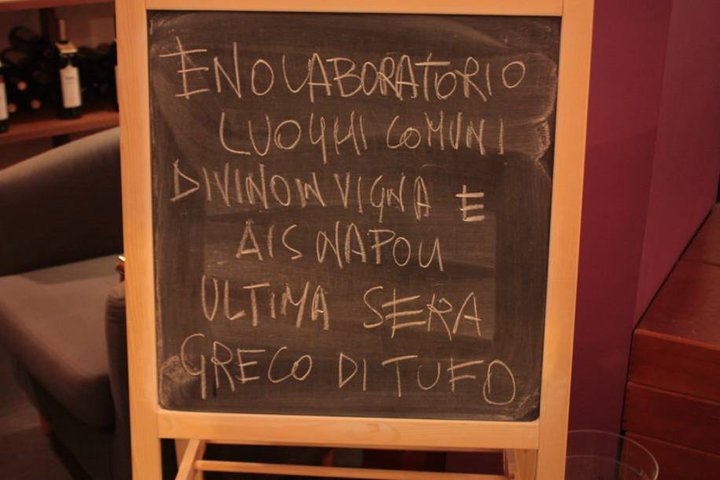 ENOLABORATORIO
LUOGHI COMUNI
DIVINOINVIGNA E
AIS NAPOLI
ULTIMA SERA
GRECO DI TUFO